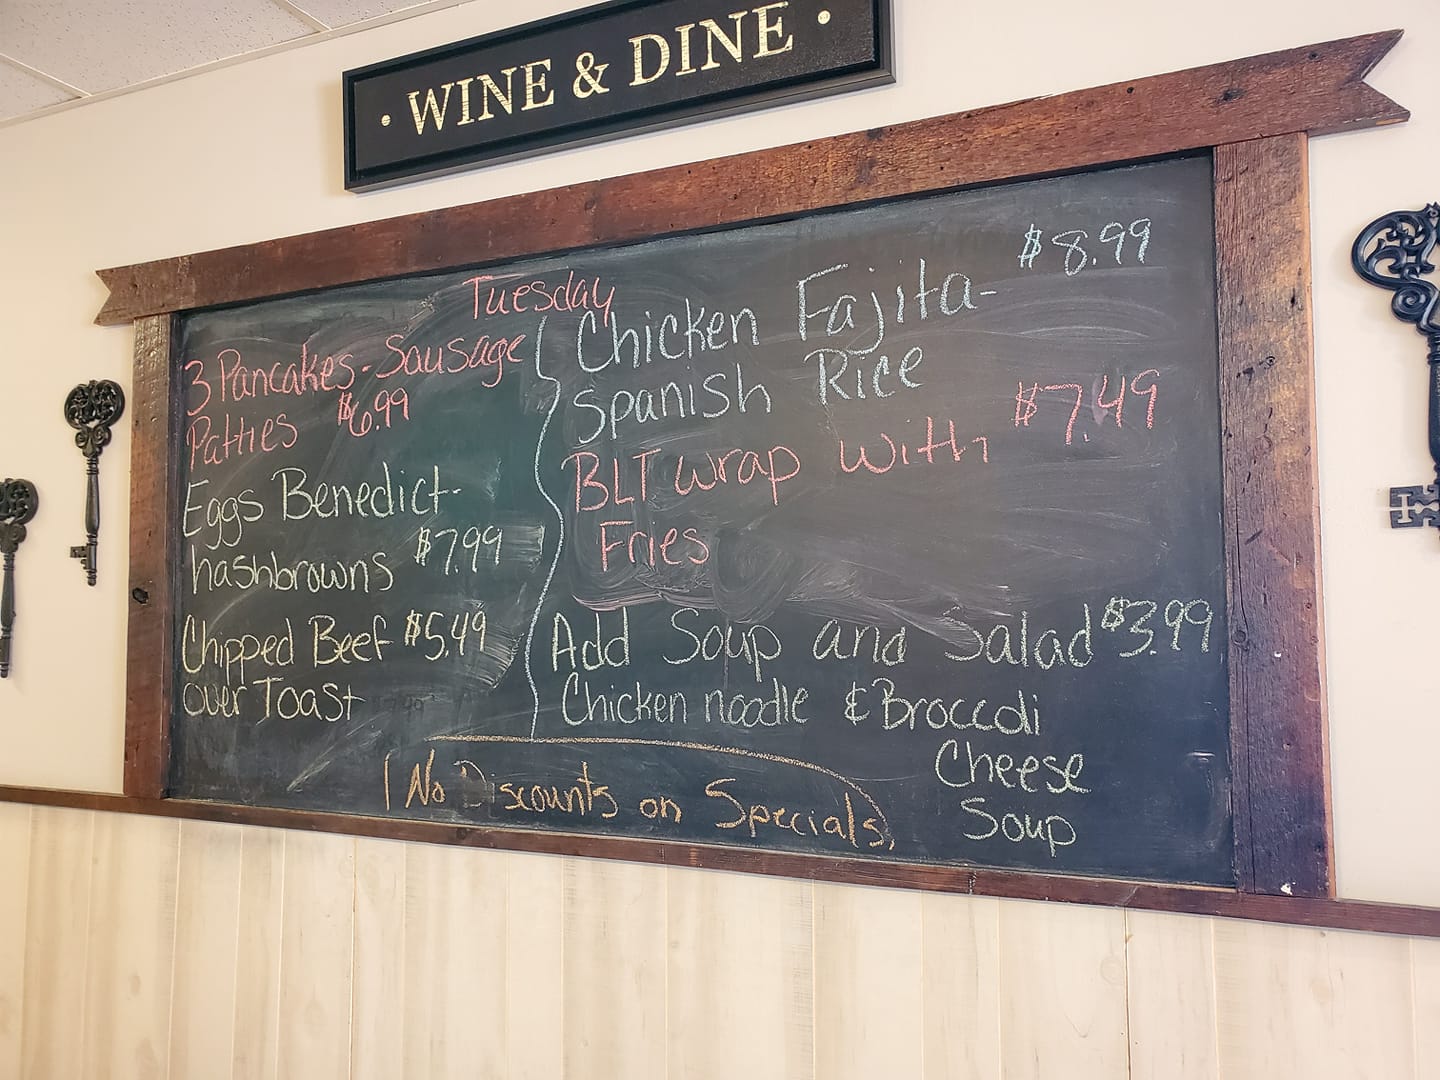 · WINE & DINE ·
Tuesday
3 Pancakes - Sausage
Patties $6.99
Eggs Benedict -
hashbrowns $7.99
Chipped Beef $5.49
over Toast
Chicken Fajita - $8.99
Spanish Rice
BLT wrap with $7.49
Fries
Add Soup and Salad $3.99
Chicken noodle & Broccoli
Cheese
Soup
(No Discounts on Specials)